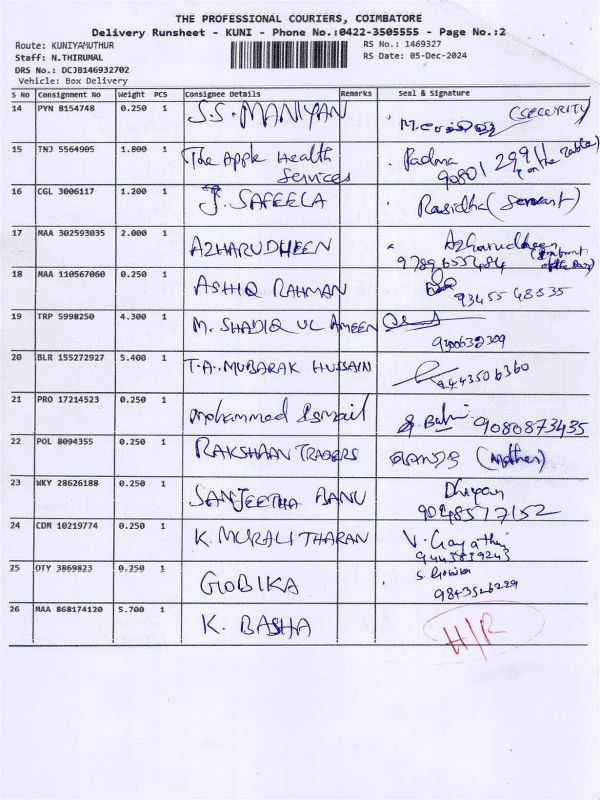 THE PROFESSIONAL COURIERS, COIMBATORE
Delivery Runsheet - KUNI - Phone No.:0422-3505555 - Page No.:2
Route: KUNIYAMUTHUR RS No.: 1469327
Staff: N.THIRUMAL RS Date: 05-Dec-2024
DRS No.: DCJB146932702
Vehicle: Box Delivery
S No Consignment No Weight PCS Consignee Details Remarks Seal & Signature
14 PYN 8154748 0.250 1 S.S. MANIYAN (SECURITY)
15 TNJ 5564905 1.800 1 The Apple Health Padma (on the Table)
Services
16 CGL 3006117 1.200 1 J. SAFEELA Rasidha (Servant)
17 MAA 302593035 2.000 1 AZHARUDHEEN Azharudheen
18 MAA 110567060 0.250 1 ASHIQ RAHMAN
19 TRP 5998250 4.300 1 M. SHADIQ UL AMEEN
20 BLR 155272927 5.400 1 T.A. MUBARAK HUSSAIN 9443506360
21 PRO 17214523 0.250 1 mohammed Ismail 9080873435
22 POL 8094355 0.250 1 RAKSHAAN TRADERS (Mother)
23 WKY 28626188 0.250 1 SANJEETHA BANU
24 CDM 10219774 0.250 1 K. MURALITHARAN V. Gayathri
9443839243
25 OTY 3869823 0.250 1 GOBIKA
26 MAA 868174120 5.700 1 K. BASHA H/R